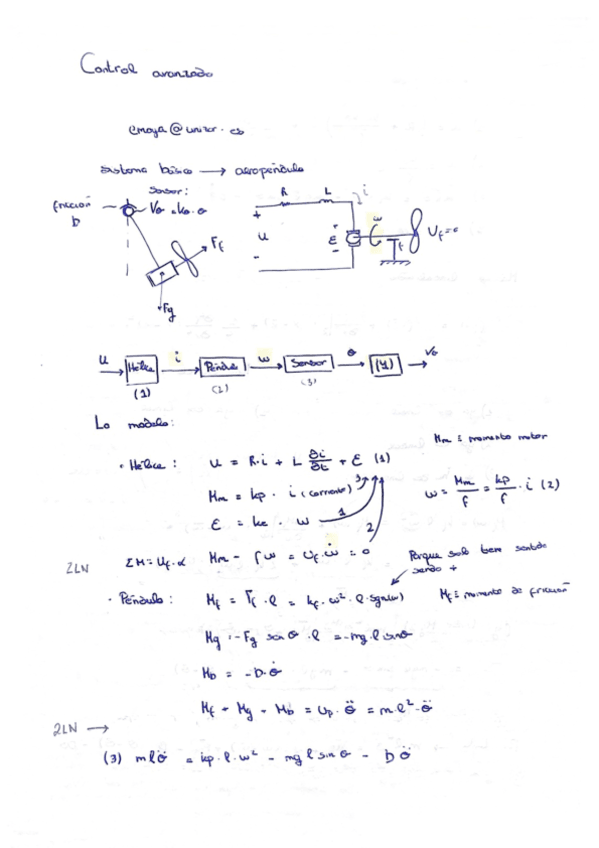 Control avanzado
sistema básico → aeropéndulo
Sensor:
fricción
b
Vθ = kθ·θ
Ff
Fg
R L i
+ u -
+ ε -
ω
f
Uf = 0
u Hélice i Péndulo ω Sensor θ (4) Vθ
(1) (2) (3)
Lo modelo:
Mm ≡ momento motor
· Hélice: u = R·i + L ∂i/∂t + ε (1)
Mm = kp · i (corriente) 3
ω = Mm/f = kp/f · i (2)
ε = ke · ω 1
2
2LN ΣM = Uf·α Mm - fω = Uf·ω̇ = 0
Porque solo tiene sentido
siendo +
· Péndulo: Mf = Ff · l = kf·ω²·l·sgn(ω)
Mf ≡ momento de fricción
Mg = -Fg sin θ · l = -mg·l sinθ
Mb = -b·θ̇
Mf + Mg + Mb = Up·θ̈ = m·l²·θ̈
2LN →
(3) mlθ̈ = kp·l·ω² - mg l sin θ - bθ̈